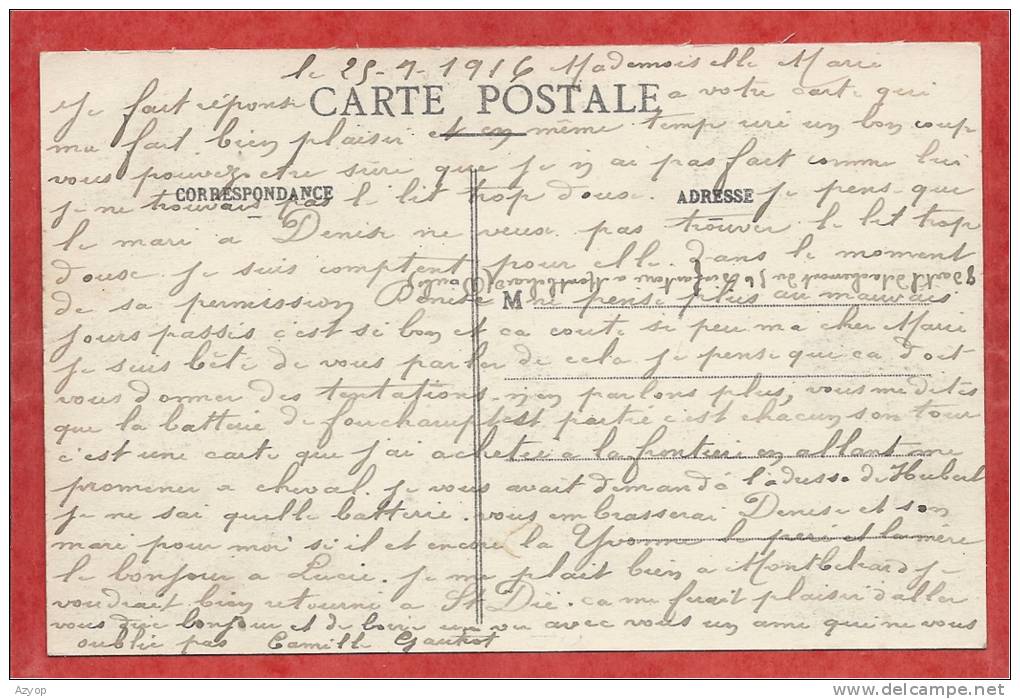 le 25-7-1916 Mademoiselle Marie
Je fait réponse a votre carte qui
CARTE POSTALE
ma fait bien plaisir et en même temp un bon coup
vous pouvez etre sûre que je n ai pas fait comme lui
CORRESPONDANCE
ADRESSE
je ne trouvais pas le lit trop douse. Je pens que
le mari a Denise ne veux pas trouver le lit trop
douse. je suis comptent pour elle. Dans le moment
de sa permission Denise ne pense plus au mauvais
M
jours passis c'est si bon et ca coute si peu ma cher Marie
je suis bête de vous parler de cela je pense que ca doit
vous donner des tentations. n'en parlons plus, vous me dites
que la batterie de fouchamp est partie c'est chacun son tour
c'est une carte que j'ai achetée a la frontiere en allant me
promener a cheval. je vous avait demandé l'adresse de Hubert
je ne sai quelle batterie. vous embrasserai Denise et son
mari pour moi si il et encore la Yvonne le péré et la mère
le bonjour a Lucie. je me plait bien a Montbeliard je
voudrait bien retourné a St Dié. ca me ferait plaisir d'aller
vous dire bonjour et de boire un verre avec vous un ami qui ne vous
oublie pas Camille Gautrot
détachement du 56 infanterie a Montbeliard
Azyop
delcampe.net